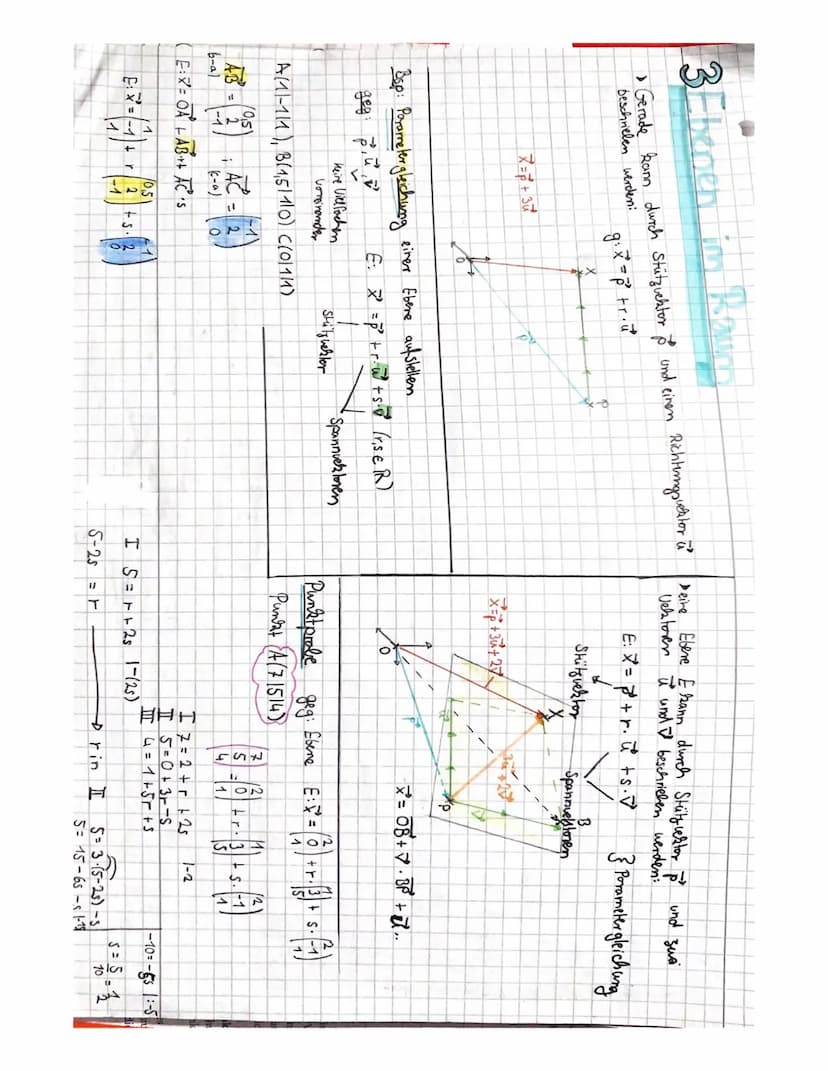 3 Ebenen im Raum
> Gerade kann durch Stützvektor p⃗ und einen Richtungsvektor u⃗
beschrieben werden:
g: x⃗ = p⃗ + r · u⃗
x⃗ = p⃗ + 3u⃗
X
P
p⃗
O
Bsp: Parametergleichung einer Ebene aufstellen
geg: p⃗, u⃗, v⃗
E: x⃗ = p⃗ + r · u⃗ + s · v⃗ (r,s ∈ R)
keine Vielfachen
voneinander
Stützvektor
Spannvektoren
A(1|-1|1), B(1,5|1|0) C(0|1|1)
AB⃗ = (0,5 2 -1) ; AC⃗ = (-1 2 0)
b-a) (c-a)
(E: x⃗ = OA⃗ + AB⃗ · r AC⃗ · s
E: x⃗ = (1 -1 1) + r (0,5 2 -1) + s · (-1 2 0)
> eine Ebene E kann durch Stützvektor p⃗ und zwei
Vektoren u⃗ und v⃗ beschrieben werden:
E: x⃗ = p⃗ + r · u⃗ + s · v⃗
} Parametergleichung
Stützvektor
Spannvektoren
x⃗ = p⃗ + 3u⃗ + 2v⃗
X
B
3u⃗ + 2v⃗
u⃗
v⃗
P
p⃗
O
x⃗ = OB⃗ + v⃗ · BP⃗ + u⃗..
Punktprobe geg: Ebene E: x⃗ = (2 0 1) + r · (1 3 5) + s · (2 -1 1)
Punkt A(7|5|4)
(7 5 4) = (2 0 1) + r · (1 3 5) + s · (2 -1 1)
I 7 = 2 + r + 2s |-2
II 5 = 0 + 3r - s
III 4 = 1 + 5r + s
I 5 = r + 2s |-(2s)
5 - 2s = r → r in II 5 = 3 · (5-2s) - s
5 = 15 - 6s - s |-15
s = 5/10 = 1/2